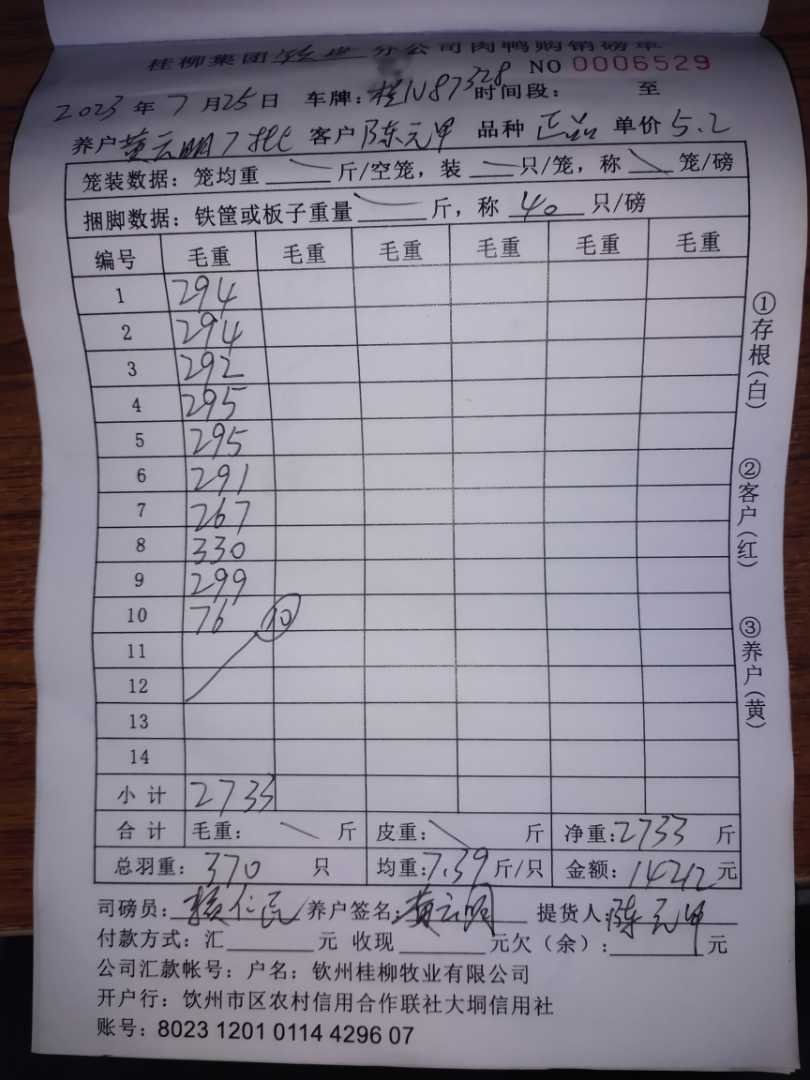 桂柳集团钦州分公司肉鸭购销磅单
NO 0006529
2023年7月25日 车牌:桂N87328 时间段: 至
养户黄云明7批 客户陈元甲 品种正品 单价5.2
笼装数据:笼均重 斤/空笼,装 只/笼,称 笼/磅
捆脚数据:铁筐或板子重量 斤,称 40 只/磅
编号 毛重 毛重 毛重 毛重 毛重 毛重
1 294
2 294
3 292
4 295
5 295
6 291
7 267
8 330
9 299
10 76 10
11
12
13
14
小计 2733
合计 毛重: 斤 皮重: 斤 净重:2733 斤
总羽重:370 只 均重:7.39斤/只 金额:14212元
司磅员: 仁民 养户签名:黄云明 提货人:陈元甲
付款方式:汇 元 收现 元欠(余): 元
公司汇款帐号:户名:钦州桂柳牧业有限公司
开户行:钦州市区农村信用合作联社大垌信用社
账号:8023 1201 0114 4296 07
①存根(白)
②客户(红)
③养户(黄)